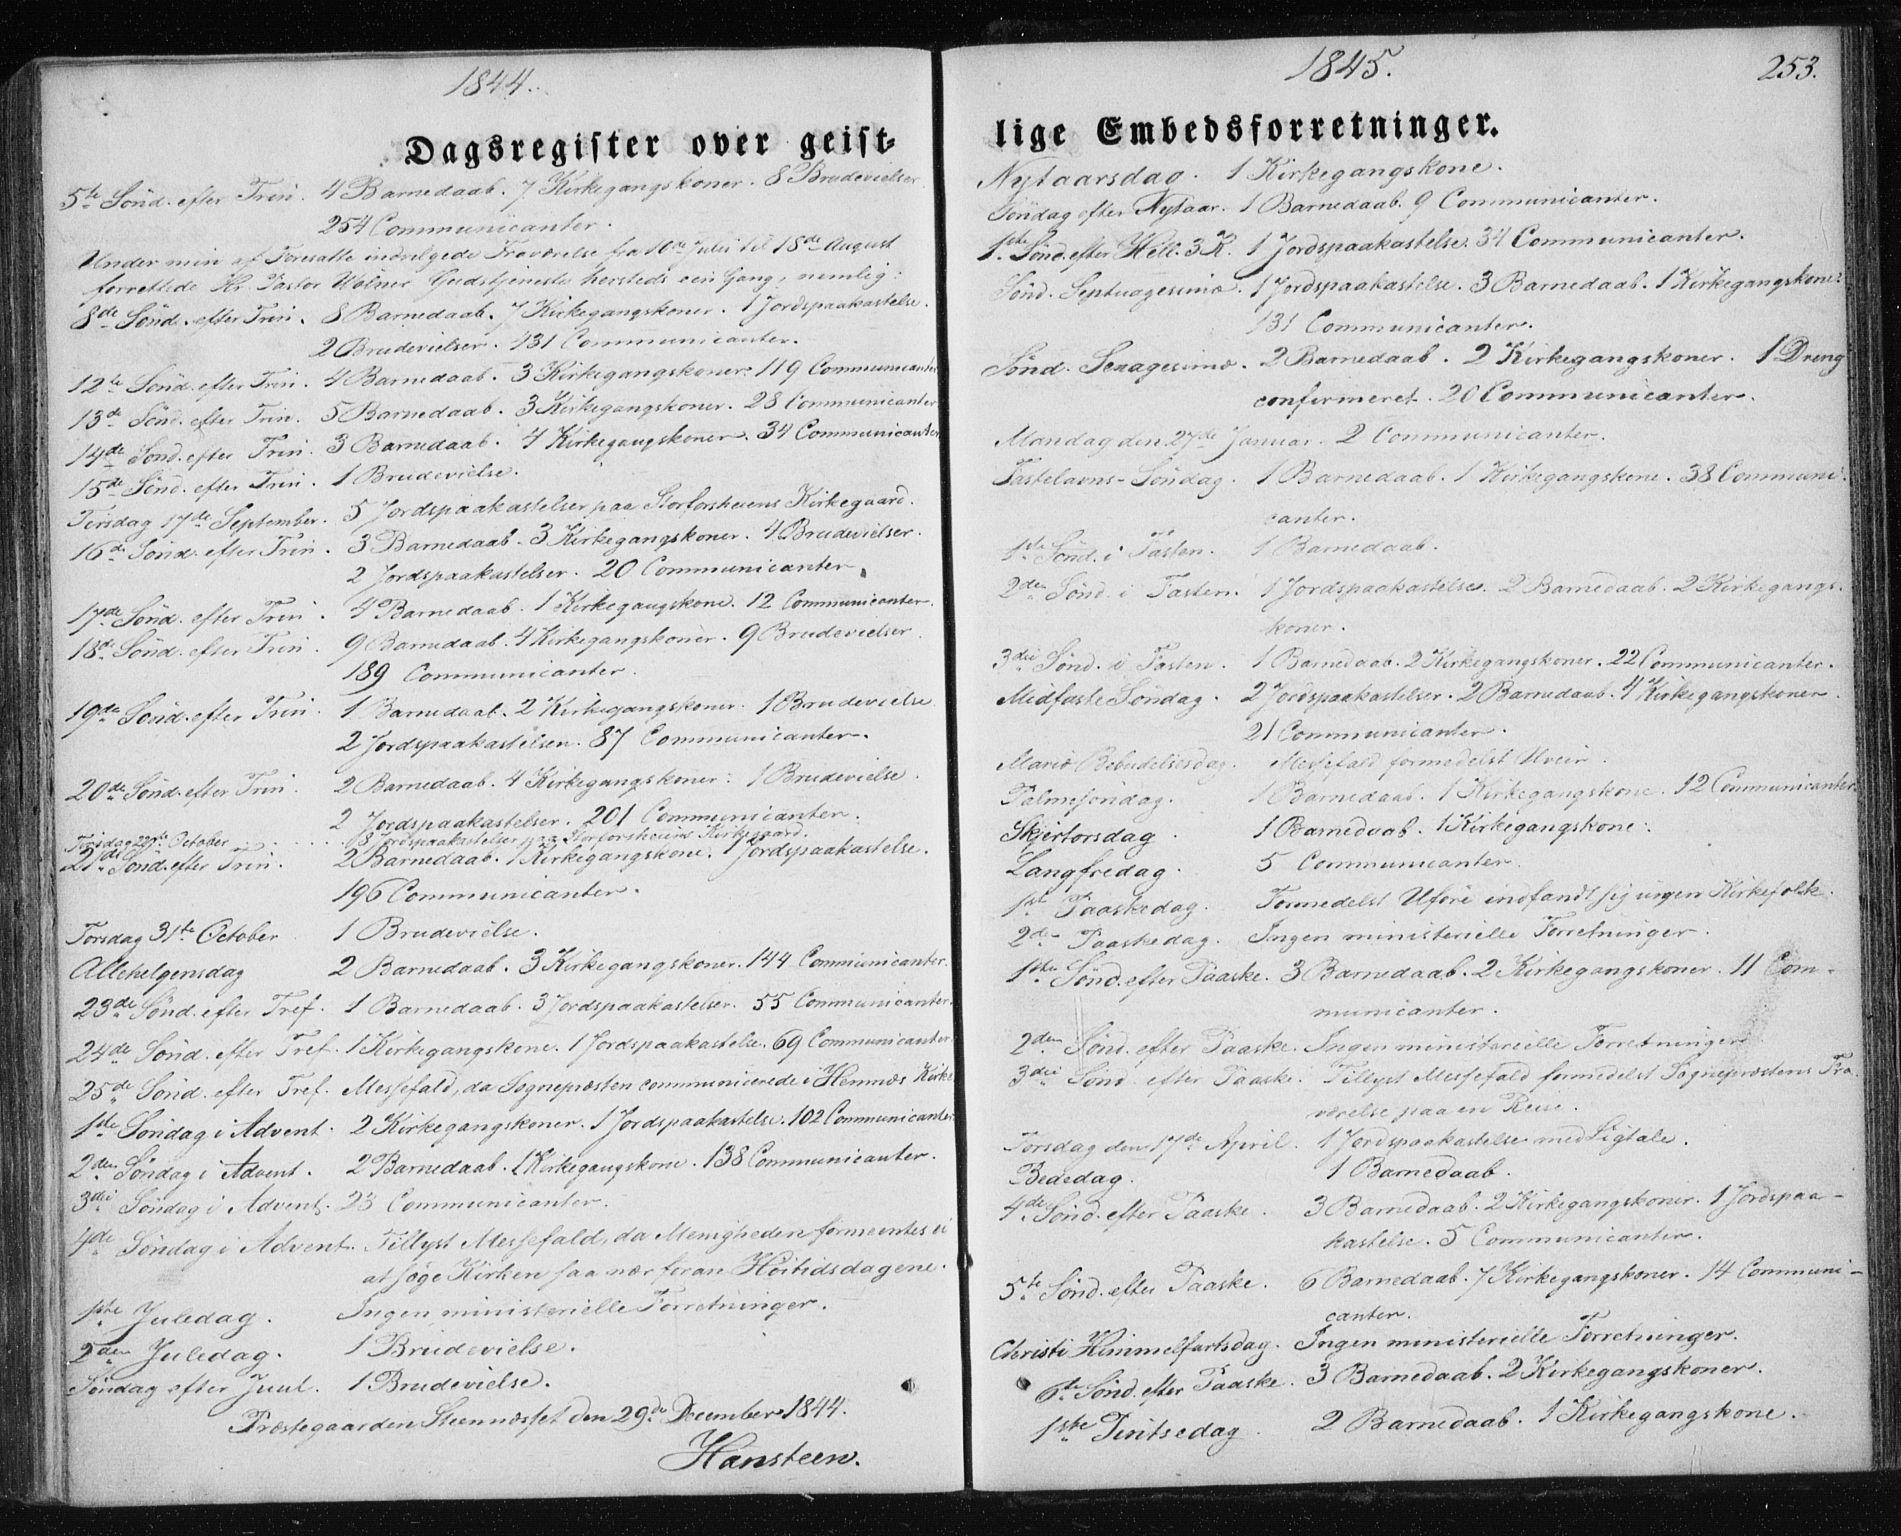 1844.
Dagsregister over geist-
5te Sönd. efter Trin. 4 Barnedaab. 7 Kirkegangskoner. 8 Brudevielser
254 Communicanter.
Under min af Foresatte indvilgede Fraværelse fra 10de Julii til 18de August
forrettede Hr. Pastor Wolner Gudstjeneste hersteds een Gang, nemlig:
8de Sönd. efter Trin. 8 Barnedaab. 7 Kirkegangskoner. 1 Jordspaakastelse.
2 Brudevielser. 131 Communicanter.
12te Sönd. efter Trin. 4 Barnedaab. 3 Kirkegangskoner. 119 Communicanter
13de Sönd. efter Trin. 5 Barnedaab. 3 Kirkegangskoner. 28 Communicanter
14de Sönd. efter Trin. 3 Barnedaab. 4 Kirkegangskoner. 34 Communicanter
15de Sönd. efter Trin. 1 Brudevielse.
Tirsdag 17de September. 5 Jordspaakastelser paa Storforsheiens Kirkegaard.
16de Sönd. efter Trin. 3 Barnedaab. 3 Kirkegangskoner. 4 Brudevielser.
2 Jordspaakastelser. 20 Communicanter.
17de Sönd. efter Trin. 4 Barnedaab. 1 Kirkegangskone. 12 Communicanter.
18de Sönd. efter Trin. 9 Barnedaab. 4 Kirkegangskoner. 9 Brudevielser.
189 Communicanter.
19de Sönd. efter Trin. 1 Barnedaab. 2 Kirkegangskoner. 1 Brudevielse
2 Jordspaakastelser. 87 Communicanter.
20de Sönd. efter Trin. 2 Barnedaab. 4 Kirkegangskoner. 1 Brudevielse.
2 Jordspaakastelser. 201 Communicanter.
Tirsdag 22de October 8 Jordspaakastelser paa Storforsheiens Kirkegaard.
21de Sönd. efter Trin. 2 Barnedaab. 1 Kirkegangskone. 1 Jordspaakastelse.
196 Communicanter.
Torsdag 31te October 1 Brudevielse.
Allehelgensdag 2 Barnedaab. 3 Kirkegangskoner. 144 Communicanter.
23de Sönd. efter Tref. 1 Barnedaab. 3 Jordspaakastelser. 55 Communicanter.
24de Sönd. efter Tref. 1 Kirkegangskone. 1 Jordspaakastelse. 69 Communicanter.
25de Sönd. efter Tref. Messefald, da Sognepræsten communicerede i Hemnæs Kirke.
1ste Söndag i Advent. 2 Kirkegangskoner. 1 Jordspaakastelse. 102 Communicanter.
2den Söndag i Advent. 2 Barnedaab. 1 Kirkegangskone. 138 Communicanter.
3die Söndag i Advent. 23 Communicanter.
4de Söndag i Advent. Tillyst Messefald, da Menigheden formeentes ei
at söge Kirken saa nær foran Höitidsdagene.
1ste Juledag. Ingen ministerielle Forretninger.
2den Juledag. 1 Brudevielse.
Söndag efter Juul. 1 Brudevielse.
Præstegaarden Steennæsset den 29de December 1844.
Hansteen.
1845.
253.
lige Embedsforretninger.
Nytaarsdag. 1 Kirkegangskone.
Söndag efter Nytaar. 1 Barnedaab. 9 Communicanter.
1ste Sönd. efter Hell. 3 K. 1 Jordspaakastelse. 34 Communicanter.
Sönd. Septuagesima. 1 Jordspaakastelse. 3 Barnedaab. 1 Kirkegangskone.
131 Communicanter.
Sönd. Sexagesima. 2 Barnedaab. 2 Kirkegangskoner. 1 Dreng
confirmeret. 20 Communicanter.
Mandag den 27de Januar. 2 Communicanter.
Fastelavns-Söndag. 1 Barnedaab. 1 Kirkegangskone. 38 Communi-
canter.
1ste Sönd. i Fasten. 1 Barnedaab.
2den Sönd. i Fasten. 1 Jordspaakastelse. 2 Barnedaab. 2 Kirkegangs-
koner.
3die Sönd. i Fasten. 1 Barnedaab. 2 Kirkegangskoner. 22 Communicanter.
Midfaste Söndag. 2 Jordspaakastelser. 2 Barnedaab. 4 Kirkegangskoner.
21 Communicanter.
Mariæ Bebudelsesdag. Messefald formedelst Uveir.
Palmesöndag. 1 Barnedaab. 1 Kirkegangskone. 12 Communicanter.
Skjertorsdag. 1 Barnedaab. 1 Kirkegangskone.
Langfredag. 5 Communicanter.
1ste Paaskedag. Formedelst Uföre indfandt sig ingen Kirkefolk.
2den Paaskedag. Ingen ministerielle Forretninger.
1ste Sönd. efter Paaske. 3 Barnedaab. 2 Kirkegangskoner. 11 Com-
municanter.
2den Sönd. efter Paaske. Ingen ministerielle Forretninger.
3die Sönd. efter Paaske. Tillyst Messefald formedelst Sognepræstens Fra-
værelse paa en Reise.
Torsdag den 17de April. 1 Jordspaakastelse med Ligtale.
Bededag. 1 Barnedaab.
4de Sönd. efter Paaske. 3 Barnedaab. 2 Kirkegangskoner. 1 Jordspaa-
kastelse. 5 Communicanter.
5te Sönd. efter Paaske. 6 Barnedaab. 7 Kirkegangskoner. 14 Communi-
canter.
Christi Himmelfartsdag. Ingen ministerielle Forretninger.
6te Sönd. efter Paaske. 3 Barnedaab. 2 Kirkegangskoner.
1ste Pintsedag 2 Barnedaab. 1 Kirkegangskone.